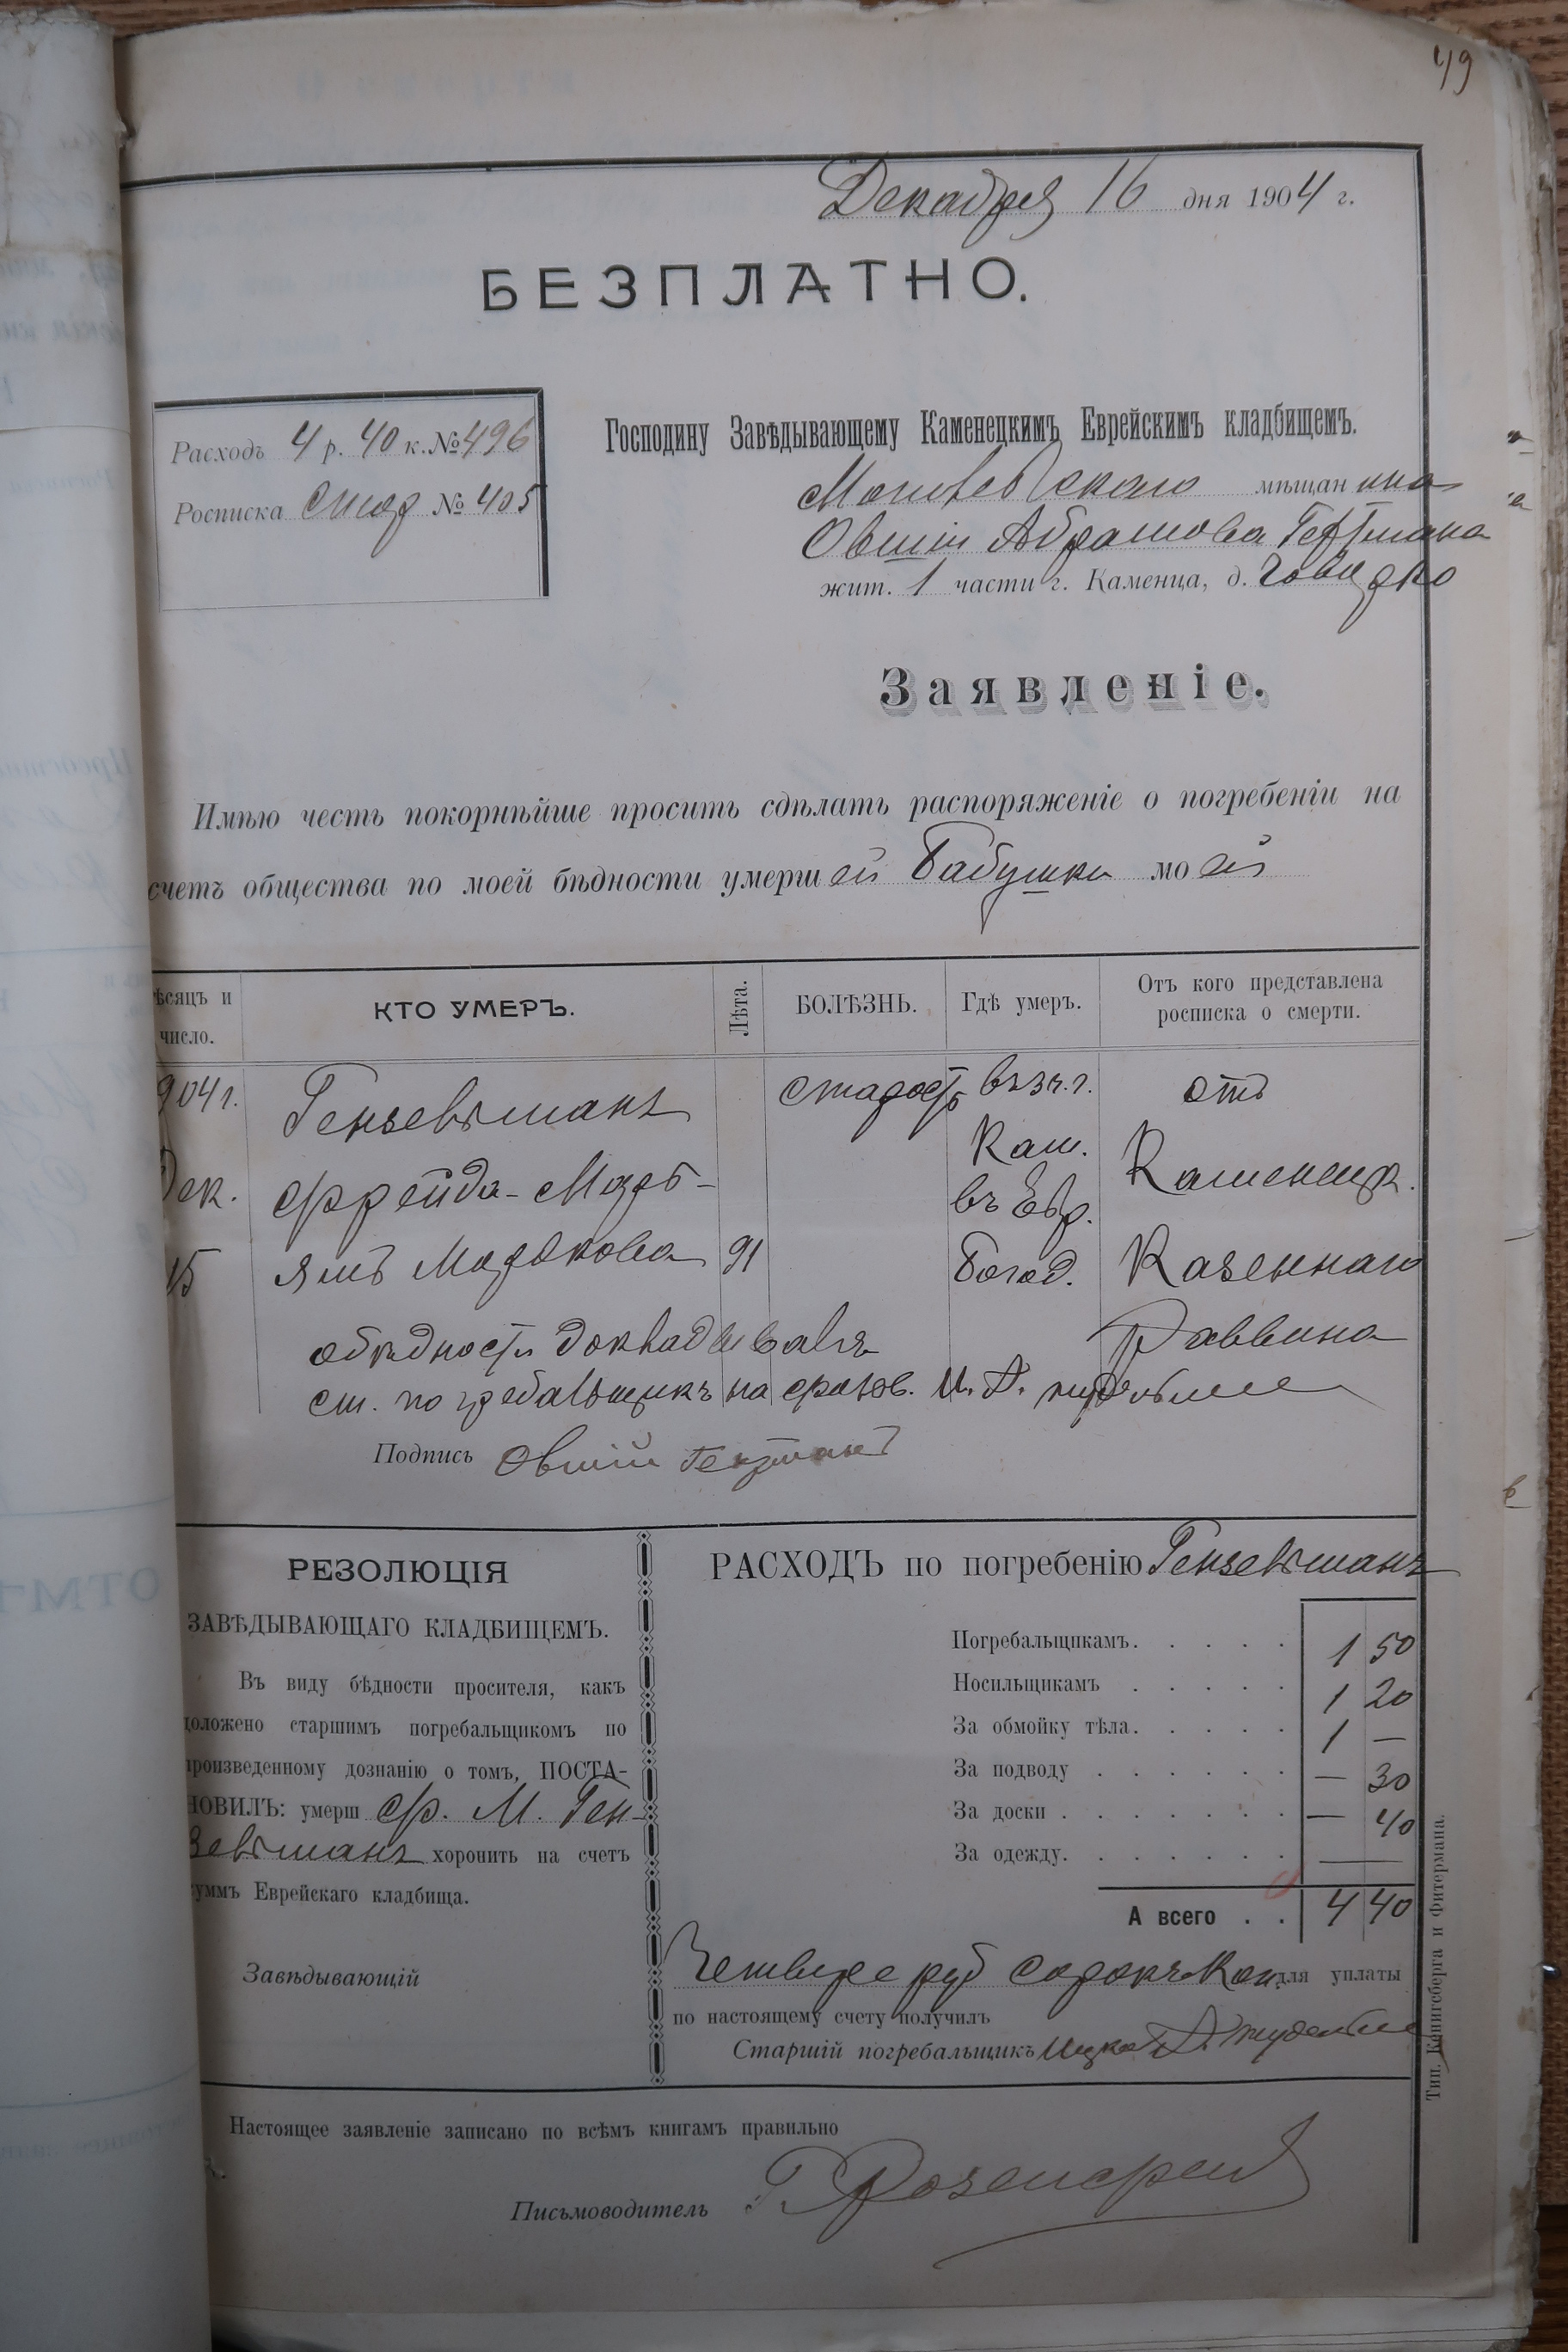 49
Декабря 16 дня 1904 г.
БЕЗПЛАТНО.
Расходъ 4 р. 40 к. № 496
Росписка № 405
Господину Завѣдывающему Каменецкимъ Еврейскимъ кладбищемъ.
мѣщанина
Овшія Абрамова
жит. 1 части г. Каменца, д.
Заявленіе.
Имѣю честь покорнѣйше просить сдѣлать распоряженіе о погребеніи на
счетъ общества по моей бѣдности умершей Бабушки моей
ѣсяцъ и число.
КТО УМЕРЪ.
Лѣта.
БОЛѢЗНЬ.
Гдѣ умеръ.
Отъ кого представлена росписка о смерти.
904 г. старость отъ
Кам.
Дек. Фрейда- въ Евр. Каменецк.
15 91 Богад. Казеннаго
Раввина
о бѣдности докладывалъ
ст. погребальщикъ на основ. И. А.
Подпись Овшій
РЕЗОЛЮЦІЯ
ЗАВѢДЫВАЮЩАГО КЛАДБИЩЕМЪ.
Въ виду бѣдности просителя, какъ
доложено старшимъ погребальщикомъ по
произведенному дознанію о томъ, ПОСТА-
НОВИЛЪ: умерш Ф. М. Ген-
зельманъ хоронить на счетъ
суммъ Еврейскаго кладбища.
Завѣдывающій
РАСХОДЪ по погребенію Гензельманъ
Погребальщикамъ. . . . . 1 50
Носильщикамъ . . . . . 1 20
За обмойку тѣла. . . . . 1 —
За подводу . . . . . . — 30
За доски . . . . . . . — 40
За одежду. . . . . . . —
А всего . . 4 40
Четыре руб сорокъ Коп. для уплаты
по настоящему счету получилъ
Старшій погребальщикъ Ицко
Тип. Кенигсберга и Фитермана.
Настоящее заявленіе записано по всѣмъ книгамъ правильно
Письмоводитель